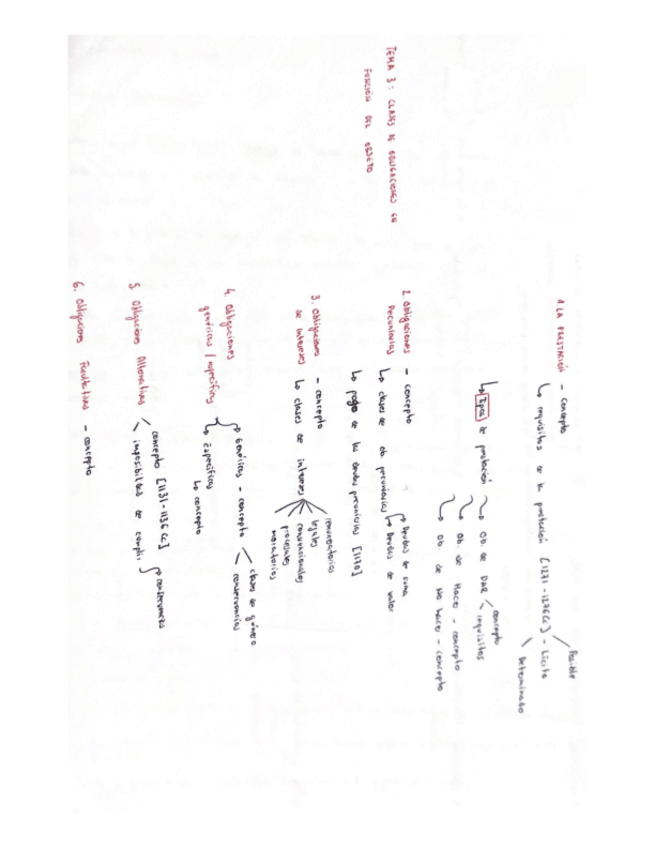 TEMA 3: CLASES DE OBLIGACIONES EN
FUNCIÓN DEL OBJETO
1. LA PRESTACIÓN - concepto
↳ requisitos de la prestación [1271-1276CC] - Posible
Lícita
Determinado
↳ Tipos de prestación
→ OB DE DAR < concepto
requisitos
→ OB. de Hacer - concepto
→ OB. de No hacer - concepto
2. Obligaciones - concepto
Pecuniarias ↳ clases de ob pecuniarias → Deudas de suma
↳ Deudas de valor
↳ pago de las deudas pecuniarias [1170]
3. Obligaciones - concepto
de intereses ↳ clases de intereses
legales
convencionales
procesales
moratorios
4. Obligaciones
genéricas / específicas
→ Genéricas - concepto < clases de género
consecuencias
↳ Específicas
↳ concepto
5. Obligaciones Alternativas < concepto [1131-1136 CC]
imposibilidad de cumpli.
consecuencias
6. Obligaciones Facultativas - concepto